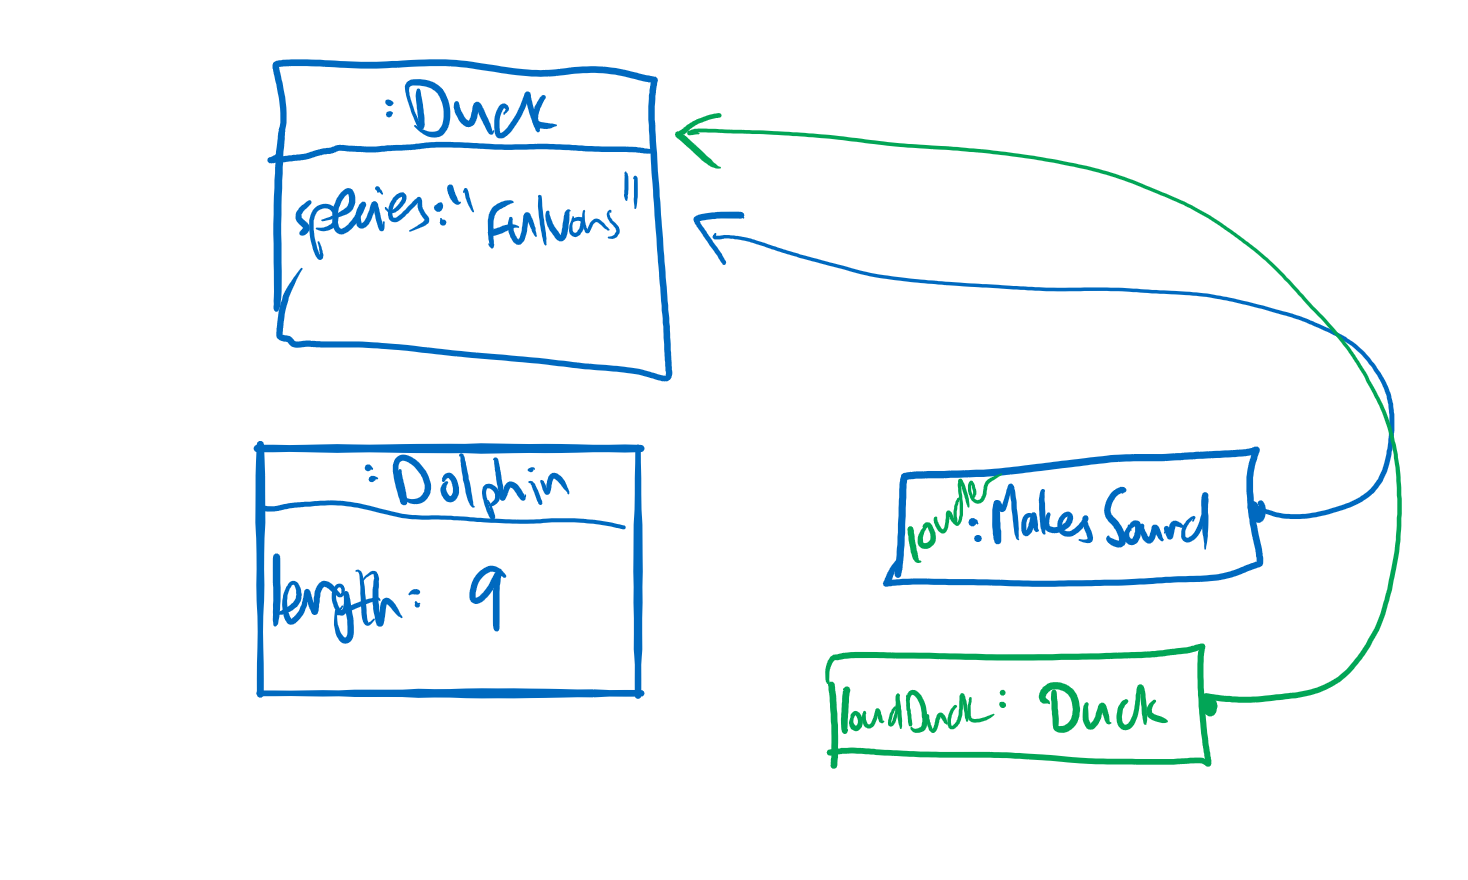 :Duck
species:" Fulvous"
:Dolphin
length: 9
louder :MakesSound
loudDuck: Duck